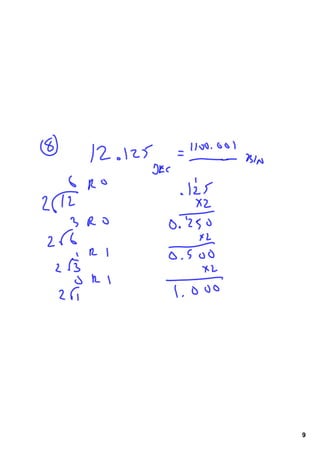 (8) 12.125 DEC = 1100.001 BIN
6 R 0
2√12
3 R 0
2√6
1 R 1
2√3
0 R 1
2√1
1
.125
x2
0.250
x2
0.500
x2
1.000
9